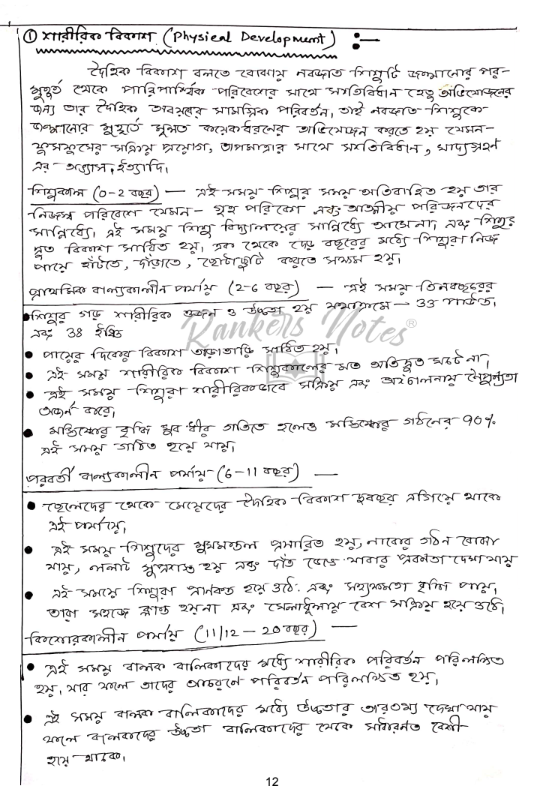 ① শারীরিক বিকাশ (Physical Development) :—
দৈহিক বিকাশ বলতে বোঝায় নবজাত শিশুটি জন্মানোর পর-
মুহূর্ত থেকে পারিপার্শ্বিক পরিবেশের সাথে সংগতিবিধান হেতু অভিযোজনের
জন্য তার দৈহিক অবয়বের সামগ্রিক পরিবর্তন, তাই নবজাত শিশুকে
জন্মানোর মুহূর্তে মূলত কয়েকধরনের অভিযোজন করতে হয় যেমন-
ফুসফুসের সক্রিয় প্রয়োগ, তাপমাত্রার সাথে সংগতিবিধান, খাদ্যগ্রহণ
এর অভ্যাস, ইত্যাদি।
শিশুকাল (0-2 বছর) — এই সময় শিশুর সময় অতিবাহিত হয় তার
নিজস্ব পরিবেশে যেমন- গৃহ পরিবেশ এবং আত্মীয় পরিজনদের
সান্নিধ্যে, এই সময় শিশু বিদ্যালয়ের সান্নিধ্যে আসেনা, এবং শিশুর
দ্রুত বিকাশ সাধিত হয়, এক থেকে দেড় বছরের মধ্যে শিশুরা নিজ
পায়ে হাঁটতে, দাঁড়াতে, ছোটাছুটি করতে সক্ষম হয়।
প্রাথমিক বাল্যকালীন পর্যায় (2-6 বছর) — এই সময় তিনবছরের
শিশুর গড় শারীরিক ওজন ও উচ্চতা হয় যথাক্রমে - 33 পাউন্ড,
এবং 38 ইঞ্চি
Rankers Notes®
• পায়ের দিকের বিকাশ তাড়াতাড়ি সাধিত হয়।
• এই সময় শারীরিক বিকাশ শিশুকালের মত অতিদ্রুত ঘটেনা,
• এই সময় শিশুরা শারীরিকভাবে সক্রিয় এবং অঙ্গচালনায় নৈপুণ্যতা
অর্জন করে,
• মস্তিষ্কের বৃদ্ধি খুব ধীর গতিতে হলেও মস্তিষ্কের গঠনের 90%
এই সময় গঠিত হয়ে যায়,
পরবর্তী বাল্যকালীন পর্যায় (6-11 বছর) —
• ছেলেদের থেকে মেয়েদের দৈহিক বিকাশ দুবছর এগিয়ে থাকে
এই পর্যায়ে,
• এই সময় শিশুদের মুখমন্ডল প্রসারিত হয়, নাকের গঠন বোঝা
যায়, ললাট সুপ্রশস্ত হয় এবং দাঁত ভেঙে যাবার প্রবণতা দেখা যায়
• এই সময়ে শিশুরা প্রানবন্ত হয়ে ওঠে এবং সহ্যক্ষমতা বৃদ্ধি পায়,
তারা সহজে ক্লান্ত হয়না এবং খেলাধূলায় বেশ সক্রিয় হয়ে ওঠে,
কিশোরকালীন পর্যায় (11/12 - 20 বছর) —
• এই সময় বালক বালিকাদের মধ্যে শারীরিক পরিবর্তন পরিলক্ষিত
হয়, যার ফলে তাদের আচরণে পরিবর্তন পরিলক্ষিত হয়,
• এই সময় বালক বালিকাদের মধ্যে উচ্চতার তারতম্য দেখা যায়
ফলে বালকদের উচ্চতা বালিকাদের থেকে সাধারনত বেশী
হয়ে থাকে,
12